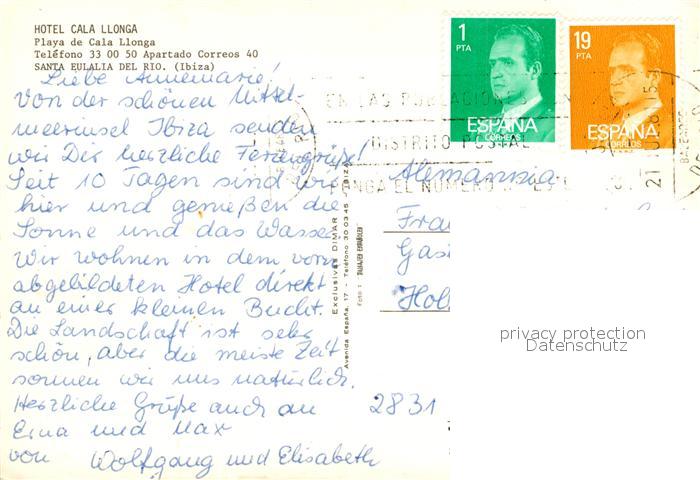 HOTEL CALA LLONGA
Playa de Cala Llonga
Teléfono 33 00 50 Apartado Correos 40
SANTA EULALIA DEL RIO. (Ibiza)
Liebe Annemarie!
Von der schönen Mittel-
meerinsel Ibiza senden
wir Dir herzliche Feriengrüße!
Seit 10 Tagen sind wir
hier und genießen die
Sonne und das Wasser.
Wir wohnen in dem vorn
abgebildeten Hotel direkt
an einer kleinen Bucht.
Die Landschaft ist sehr
schön, aber die meiste Zeit
sonnen wir uns natürlich.
Herzliche Grüße auch an
Erna und Max
von Wolfgang und Elisabeth
Exclusivas DIMAR
Avenida España, 17 - Teléfono 30 03 45 - IBIZA
1
PTA
ESPAÑA
CORREOS
19
PTA
ESPAÑA
CORREOS
EN LAS POBLACIONES
DISTRITO POSTAL
PONGA EL NUMERO
Alemannia
Fra
Gas
Hol
2831
privacy protection
Datenschutz